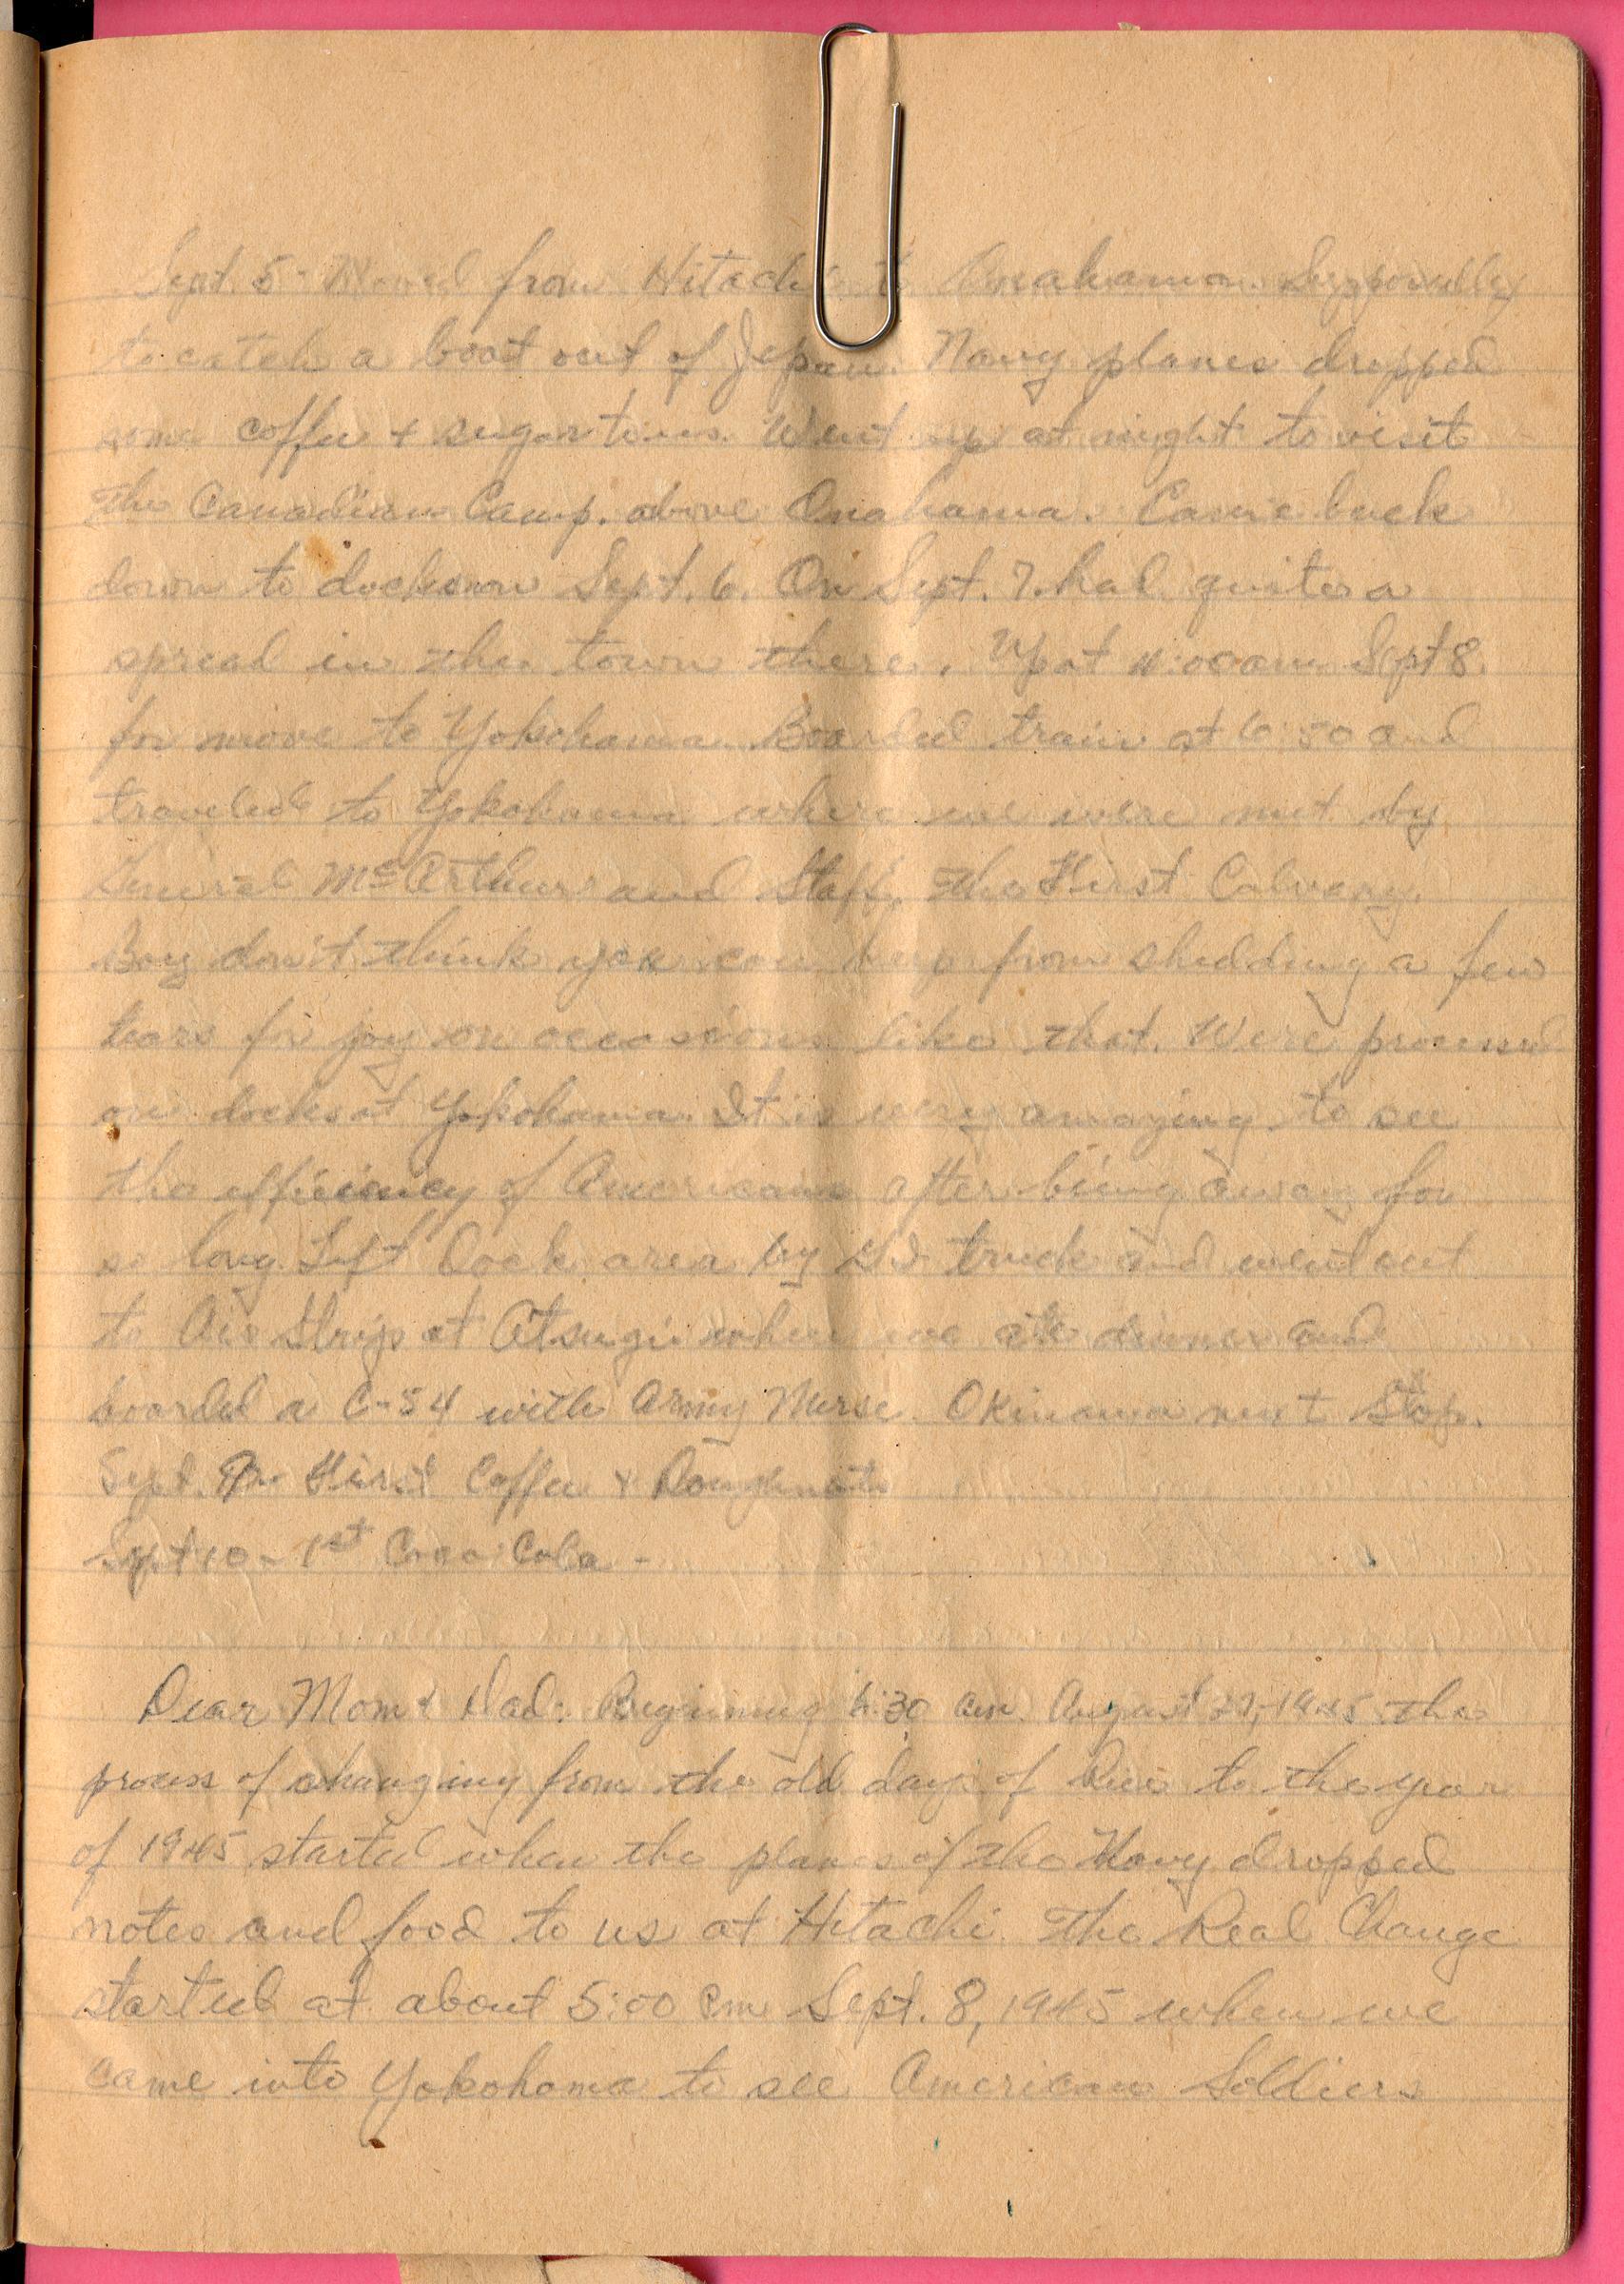 Sept. 5 - Moved from Hitachi to Onahama Supposedly
to catch a boat out of Japan. Navy planes dropped
some coffee + sugar to us. Went up at night to visit
the Canadian Camp. above Onahama. Came back
down to docks on Sept. 6. On Sept. 7. had quite a
spread in the town there. Up at 4:00 am Sept 8.
for move to Yokohama. Boarded train at 6:50 and
traveled to Yokohama where we were met by
General McArthur and Staff, The First Calvary.
Boy don't think you can keep from shedding a few
tears for joy on occasions like that. Were processed
on docks at Yokohama. It is very amazing to see
the efficiency of Americans after being away for
so long. Left Dock area by GI truck and went out
to Air Strip at Atsugi where we ate dinner and
boarded a C-54 with Army Nurse. Okinawa next stop.
Sept. First Coffee & Doughnuts
Sept 10 - 1st Coca Cola -
Dear Mom & Dad: Beginning 6:30 am. August 1945 the
process of changing from the old days of to the year
of 1945 started when the planes of the Navy dropped
notes and food to us at Hitachi. The Real Change
started at about 5:00 Pm Sept. 8, 1945 when we
came into Yokohama to see American Soldiers